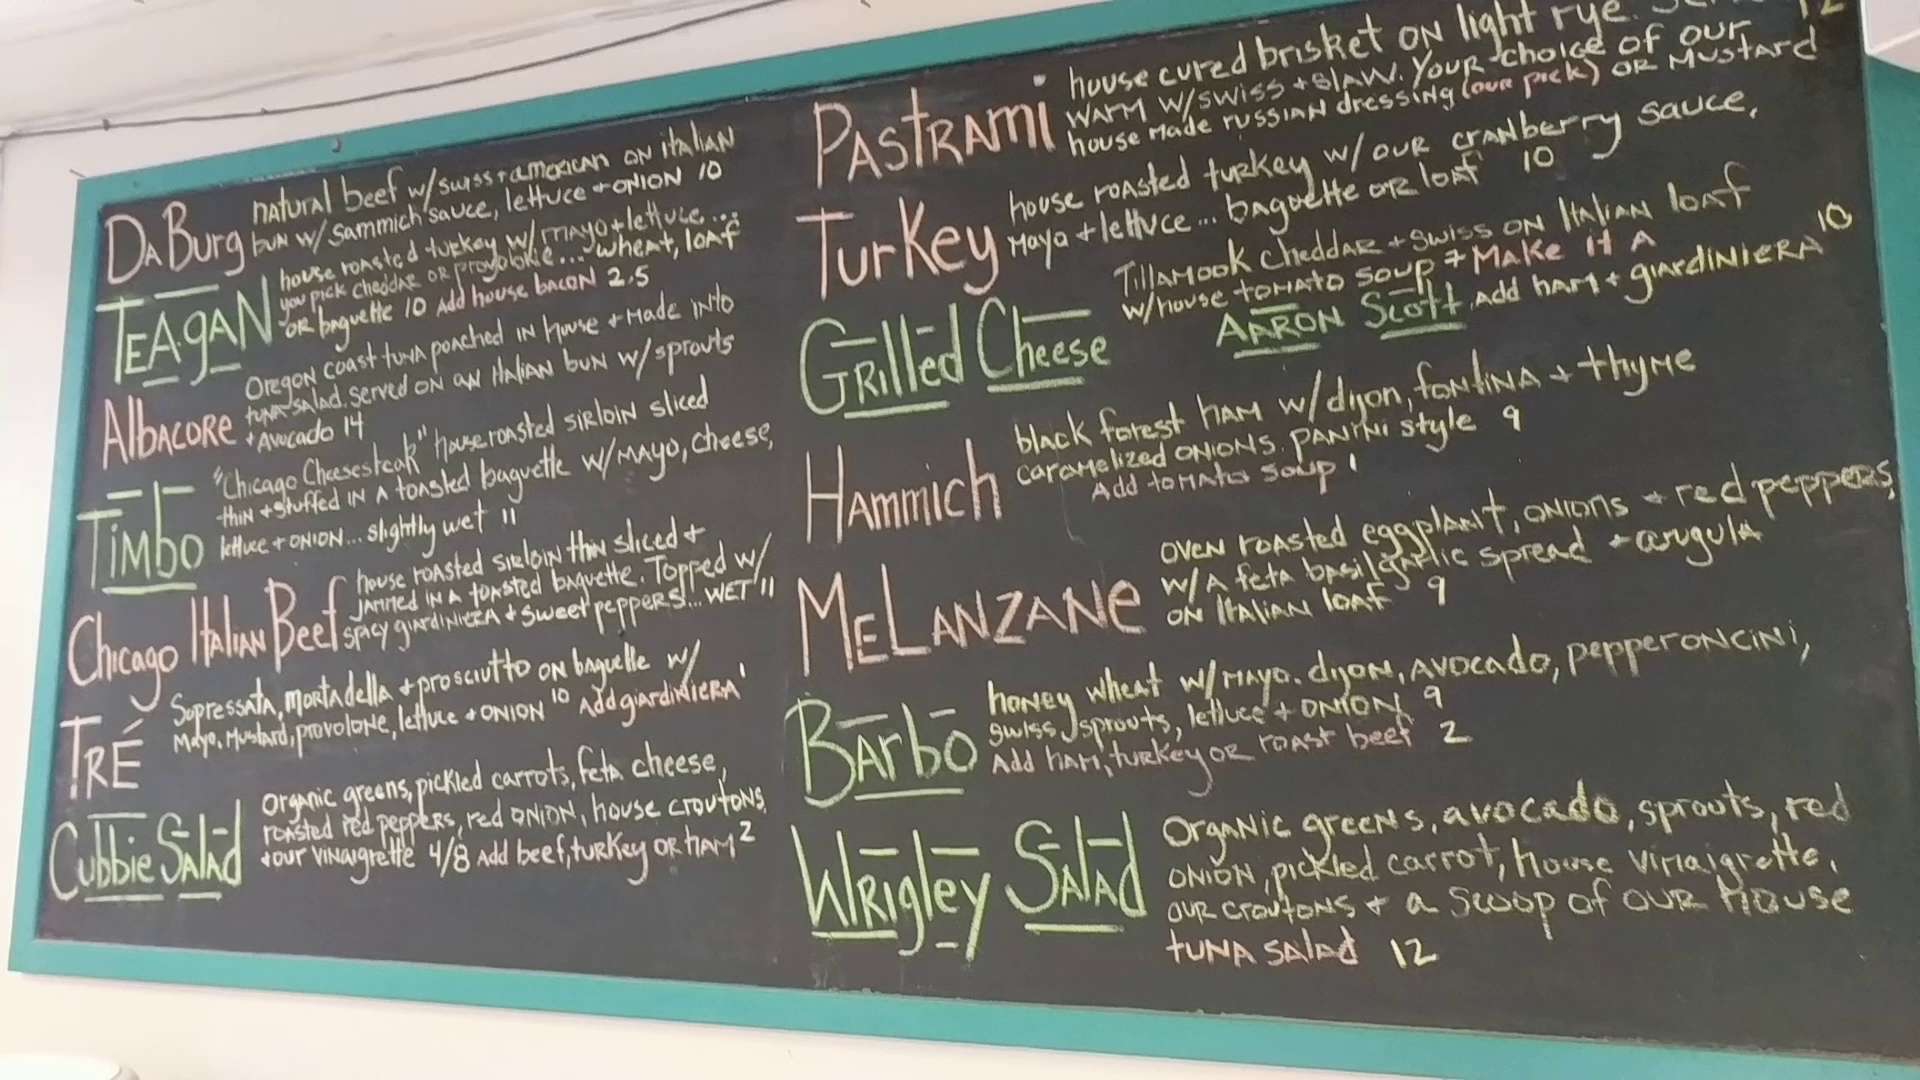 DaBurg
natural beef w/swiss + american on italian
bun w/ sammich sauce, lettuce + onion 10
Teagan
house roasted turkey w/ mayo + lettuce...
you pick cheddar or provolone... wheat, loaf
or baguette 10 Add house bacon 2.5
Albacore
Oregon coast tuna poached in house + made into
tuna salad. served on an italian bun w/ sprouts
+ avocado 14
Timbo
"Chicago Cheesesteak" house roasted sirloin sliced
thin + stuffed in a toasted baguette w/ mayo, cheese,
lettuce + onion... slightly wet 11
Chicago Italian Beef
house roasted sirloin thin sliced +
jammed in a toasted baguette. Topped w/
spicy giardiniera + sweet peppers!.. WET 11
Tré
Sopressata, mortadella + prosciutto on baguette w/
Mayo, Mustard, provolone, lettuce + onion 10 Add giardiniera 1
Cubbie Salad
Organic greens, pickled carrots, feta cheese,
roasted red peppers, red onion, house croutons,
+ our vinaigrette 4/8 Add beef, turkey or ham 2
Pastrami
house cured brisket on light rye. 12
warm w/swiss + slaw. Your choice of our
house made russian dressing (our pick) or mustard
Turkey
house roasted turkey w/ our cranberry sauce,
Mayo + lettuce... baguette or loaf 10
Grilled Cheese
Tillamook cheddar + swiss on Italian loaf
w/house tomato soup + Make it a
Aaron Scott Add ham + giardiniera 10
Hammich
black forest ham w/ dijon, fontina + thyme
caramelized onions. panini style 9
Add tomato soup 1
Melanzane
oven roasted eggplant, onions + red peppers,
w/a feta basil/garlic spread + arugula
on Italian loaf 9
Barbo
honey wheat w/ mayo. dijon, avocado, pepperoncini,
swiss, sprouts, lettuce + onion 9
Add ham, turkey or roast beef 2
Wrigley Salad
Organic greens, avocado, sprouts, red
onion, pickled carrot, house vinaigrette,
our croutons + a scoop of our house
tuna salad 12